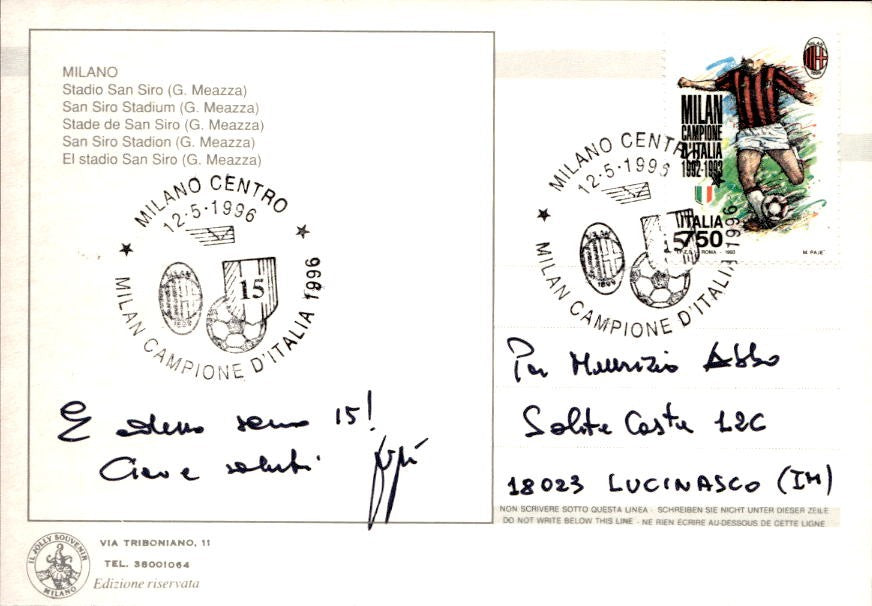 MILANO
Stadio San Siro (G. Meazza)
San Siro Stadium (G. Meazza)
Stade de San Siro (G. Meazza)
San Siro Stadion (G. Meazza)
El stadio San Siro (G. Meazza)
MILANO CENTRO
12-5-1996
15
1899
MILAN CAMPIONE D'ITALIA 1996
E adesso sono 15!
Ciao e saluti
MILAN
CAMPIONE
D'ITALIA
1992-1993
ITALIA
750
ROMA - 1993
M. PAJÈ
MILANO CENTRO
12-5-1996
15
MILAN CAMPIONE D'ITALIA 1996
Per Maurizio Abbo
Salite Costa 12C
18023 LUCINASCO (IM)
NON SCRIVERE SOTTO QUESTA LINEA - SCHREIBEN SIE NICHT UNTER DIESER ZEILE
DO NOT WRITE BELOW THIS LINE - NE RIEN ÉCRIRE AU-DESSOUS DE CETTE LIGNE
IL JOLLY SOUVENIR
MILANO
VIA TRIBONIANO, 11
TEL. 38001064
Edizione riservata